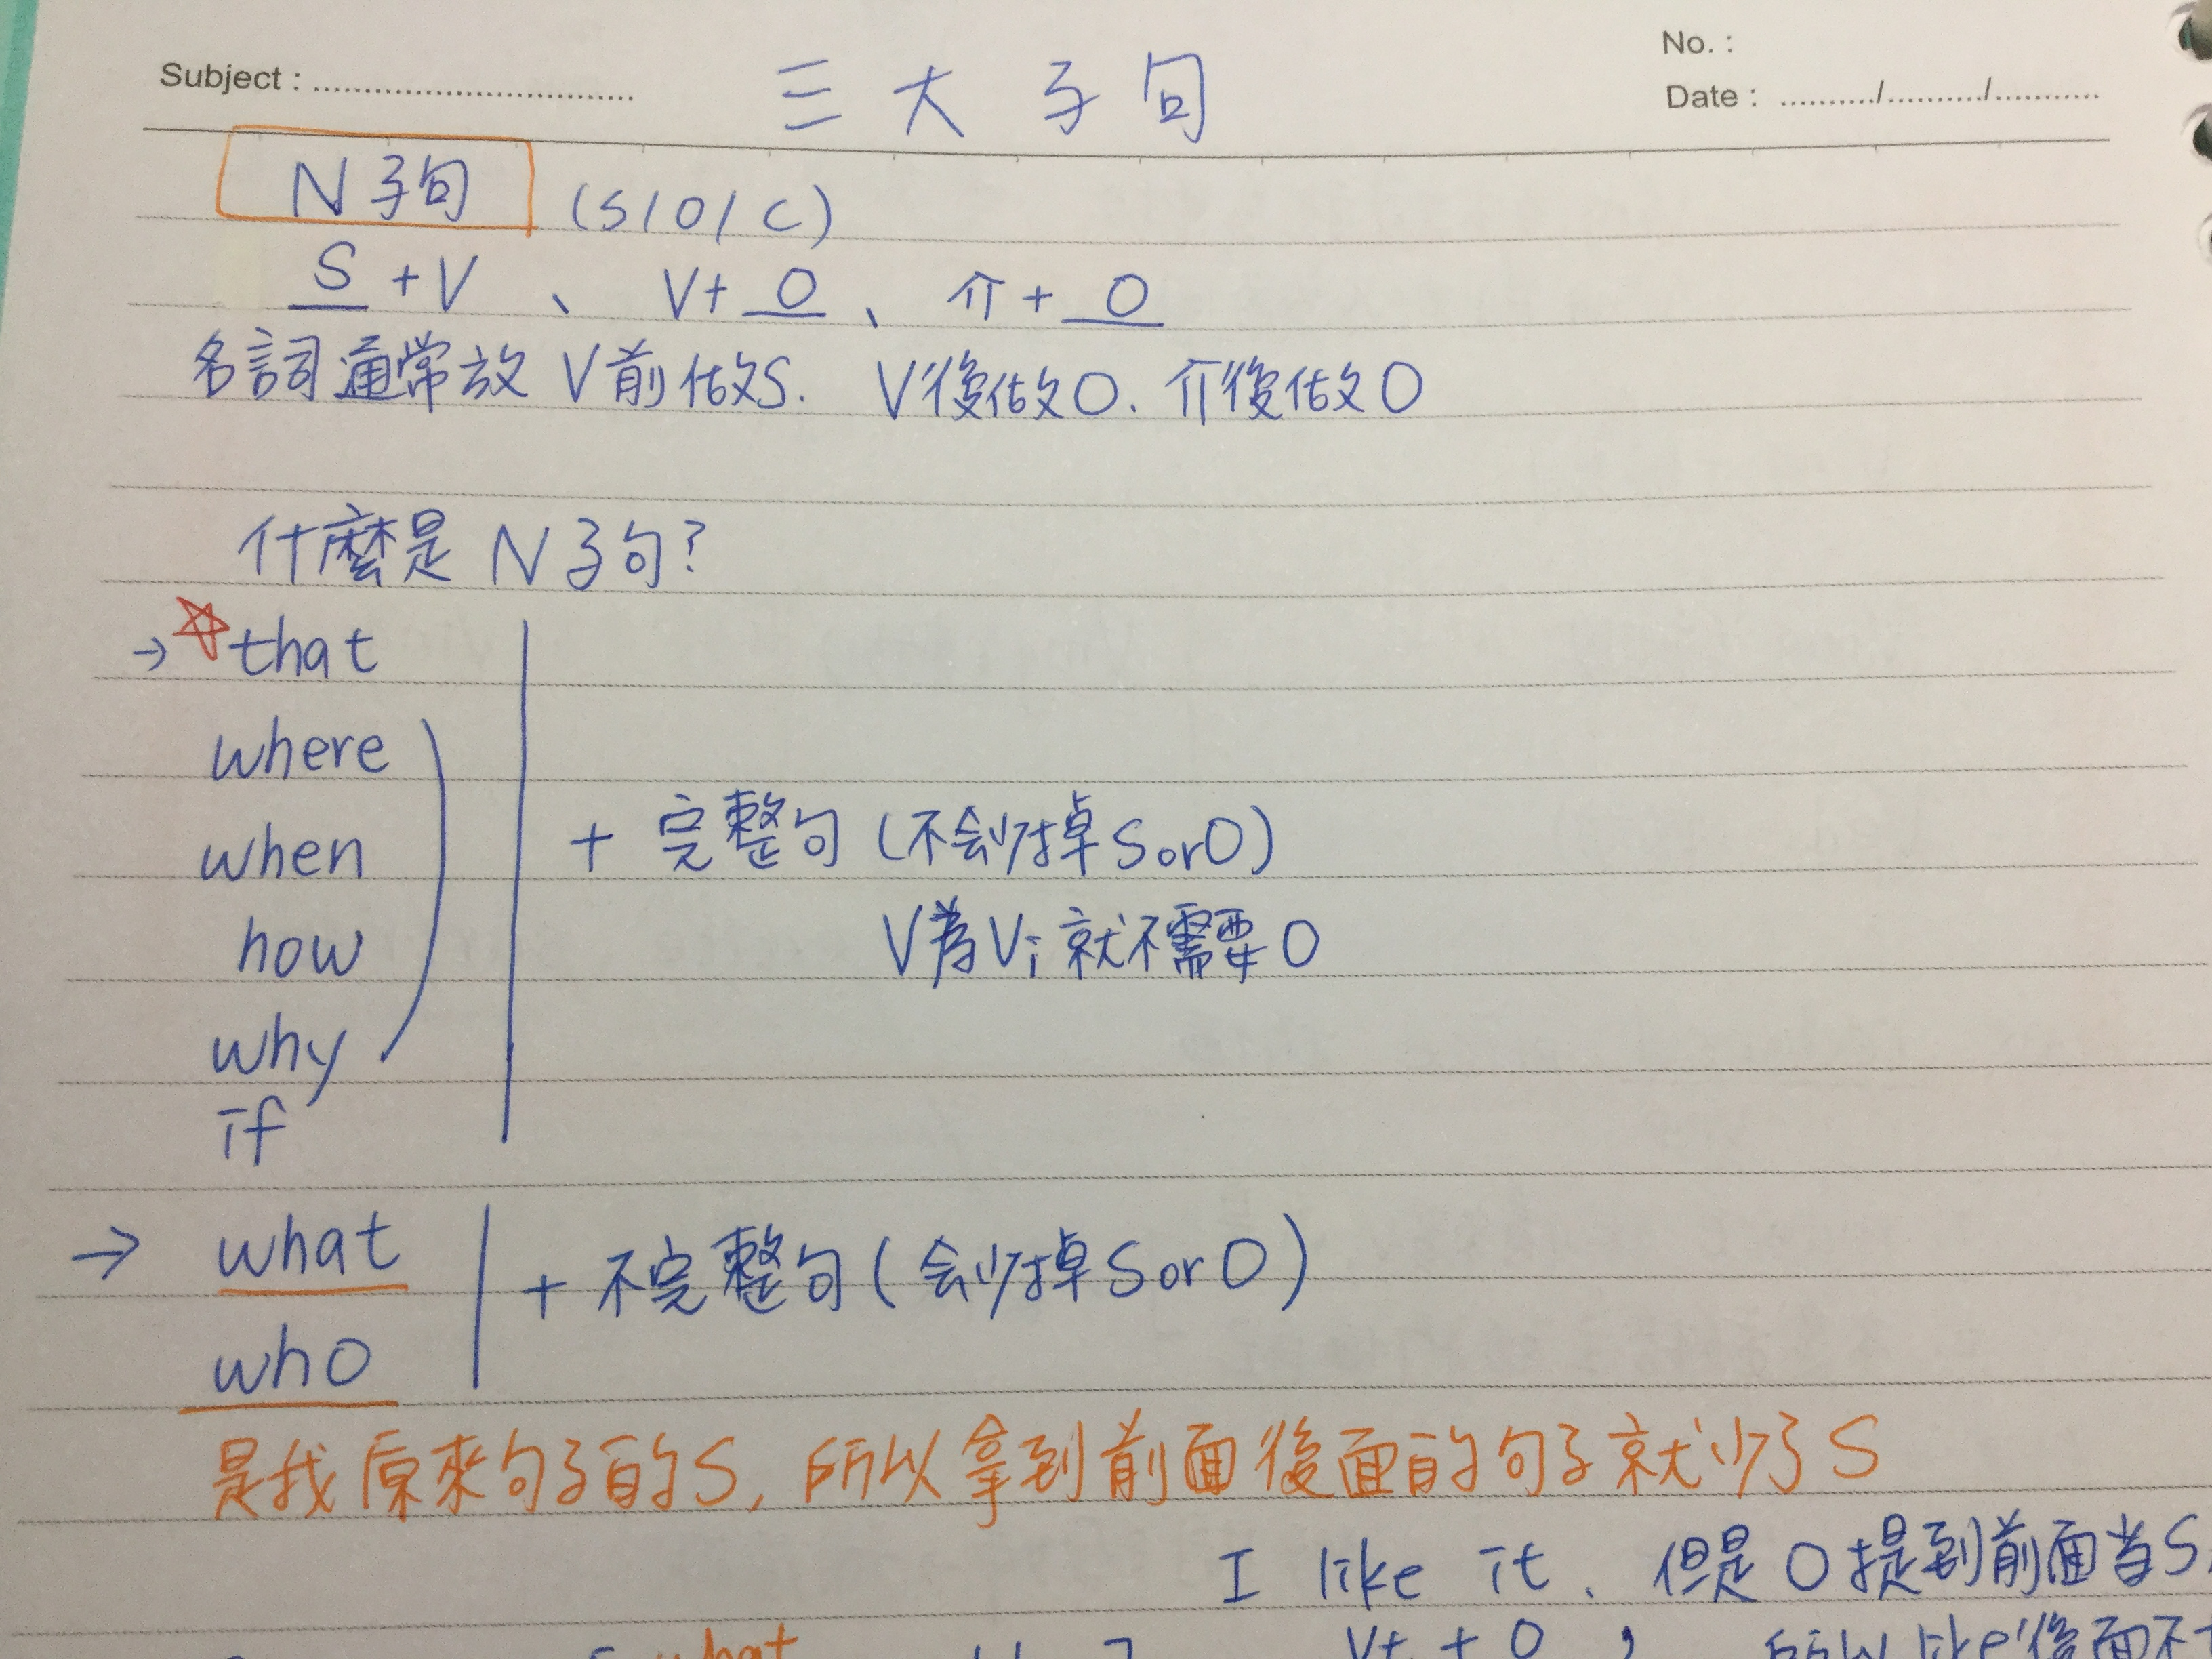 No. :
Subject : 三大子句 Date : / /
N子句 (S/O/C)
S + V 、 V + O 、 介 + O
名詞通常放V前做S. V後做O. 介後做O
什麼是 N子句?
→ ☆ that
where
when + 完整句 (不会少掉S or O)
how V為Vi就不需要O
why
if
→ what + 不完整句 (会少掉S or O)
who
是我原來句子的S, 所以拿到前面後面的句子就少了S
I like it. 但是O提到前面当S
what Vt + O , 所以like後面不